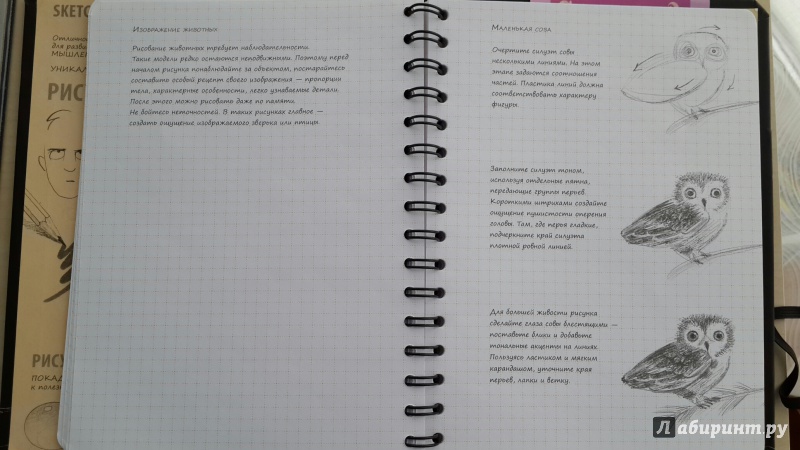 SKETC
для разви
МЫШЛЕН
УНИКАЛ
РИС
РИСУ
ПОКАД
к полезн
Изображение животных
Рисование животных требует наблюдательности.
Такие модели редко остаются неподвижными. Поэтому перед
началом рисунка понаблюдайте за объектом, постарайтесь
составить особый рецепт своего изображения — пропорции
тела, характерные особенности, легко узнаваемые детали.
После этого можно рисовать даже по памяти.
Не бойтесь неточностей. В таких рисунках главное —
создать ощущение изображаемого зверька или птицы.
Маленькая сова
Очертите силуэт совы
несколькими линиями. На этом
этапе задаются соотношения
частей. Пластика линий должна
соответствовать характеру
фигуры.
Заполните силуэт тоном,
используя отдельные пятна,
передающие группы перьев.
Короткими штрихами создайте
ощущение пушистости оперения
головы. Там, где перья гладкие,
подчеркните край силуэта
плотной ровной линией.
Для большей живости рисунка
сделайте глаза совы блестящими —
поставьте блики и добавьте
тональные акценты на линиях.
Пользуясь ластиком и мягким
карандашом, уточните края
перьев, лапки и ветку.
Лабиринт.ру